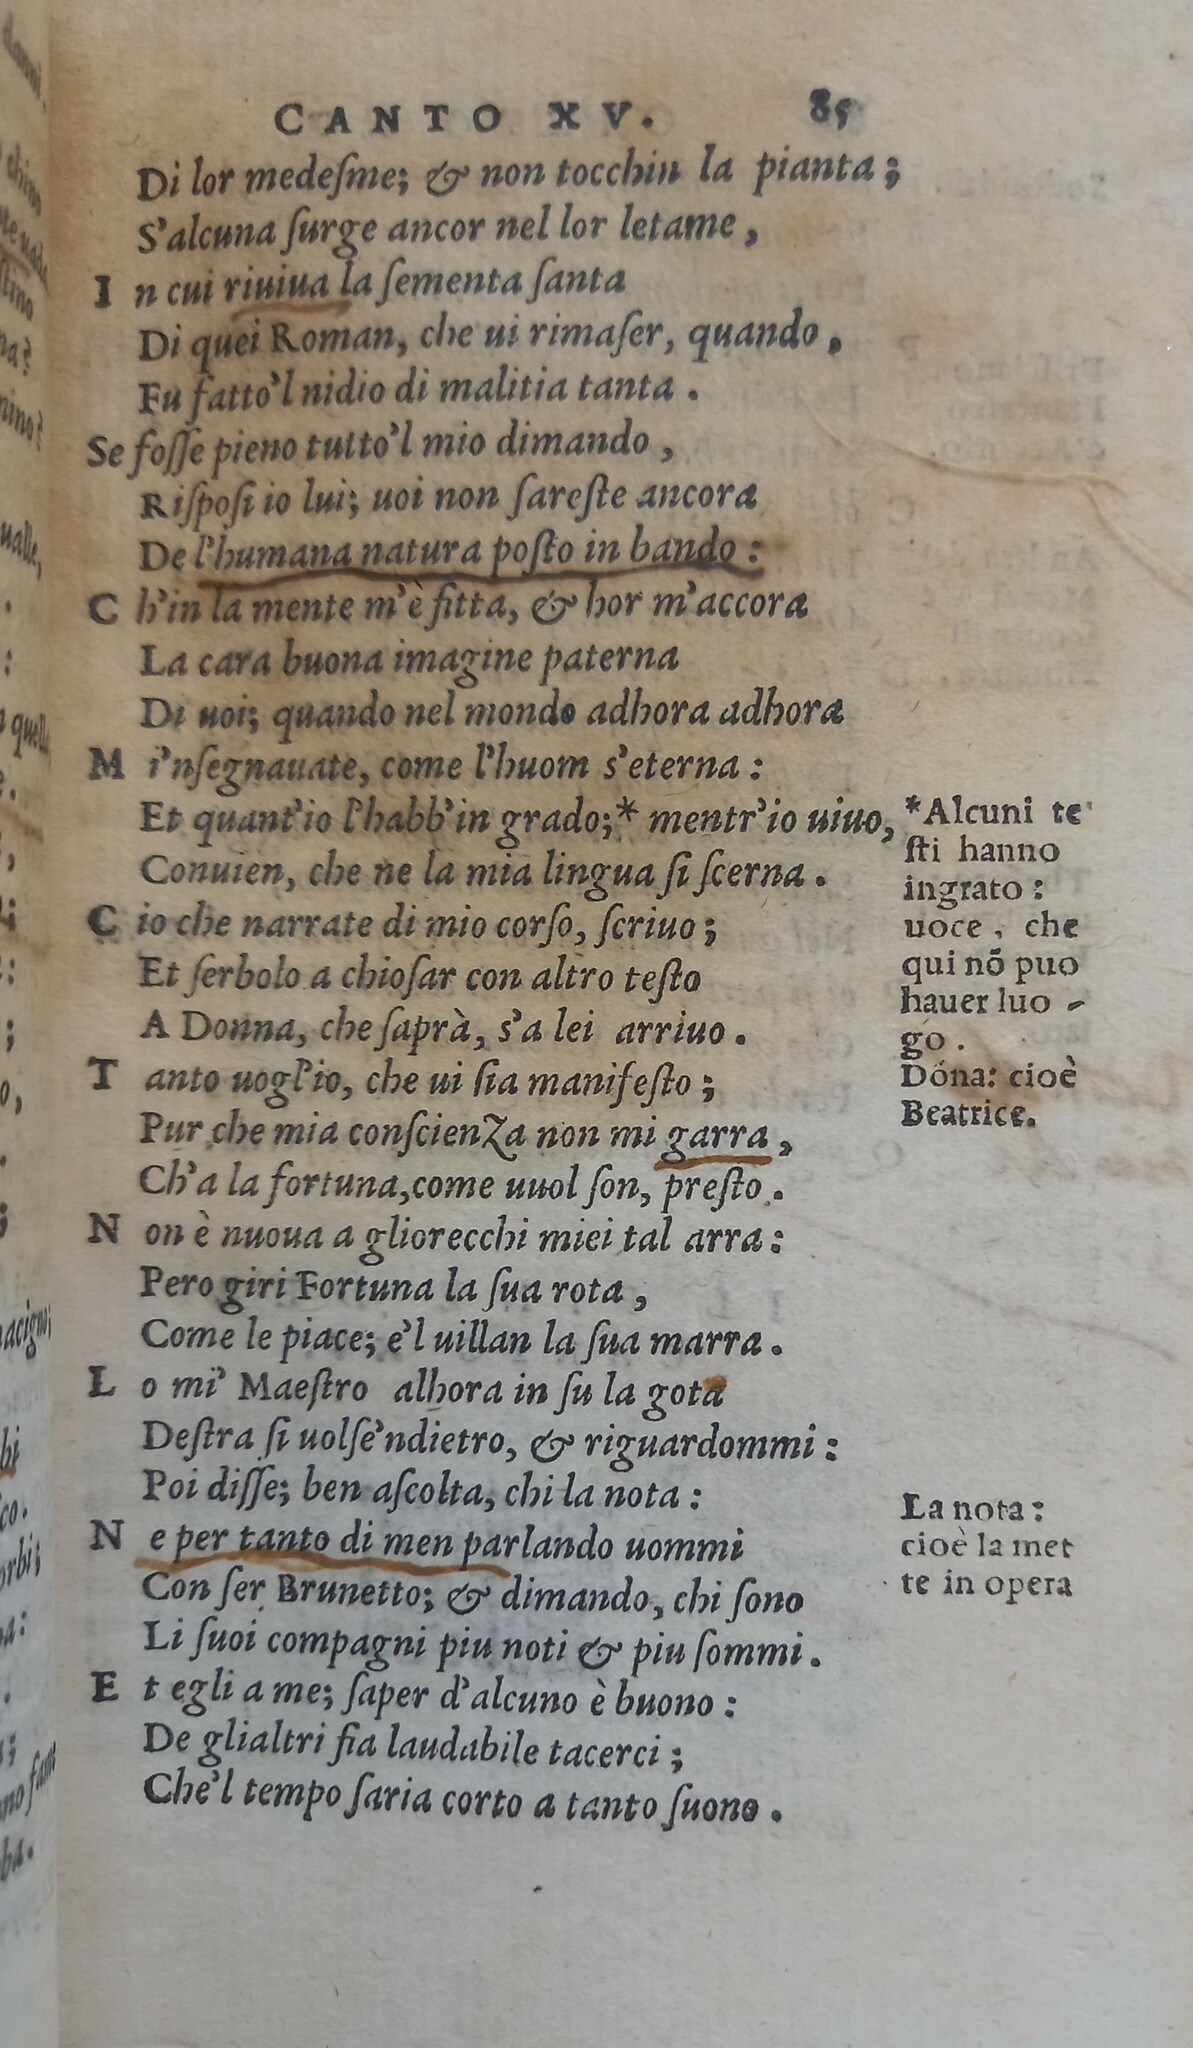 CANTO XV. 85
Di lor medeſme; & non tocchin la pianta;
S'alcuna ſurge ancor nel lor letame,
In cui riuiua la ſementa ſanta
Di quei Roman, che ui rimaſer, quando,
Fu fatto'l nidio di malitia tanta.
Se foſſe pieno tutto'l mio dimando,
Riſpoſi io lui; uoi non ſareſte ancora
De l'humana natura poſto in bando:
Ch'in la mente m'è fitta, & hor m'accora
La cara buona imagine paterna
Di uoi; quando nel mondo adhora adhora
M i'nſegnauate, come l'huom s'eterna:
Et quant'io l'habb'in grado;* mentr'io uiuo,
Conuien, che ne la mia lingua ſi ſcerna.
Cio che narrate di mio corſo, ſcriuo;
Et ſerbolo a chioſar con altro teſto
A Donna, che ſaprà, s'a lei arriuo.
Tanto uogl'io, che ui ſia manifeſto;
Pur che mia conſcienza non mi garra,
Ch'a la fortuna, come uuol ſon, preſto.
Non è nuoua a gliorecchi miei tal arra:
Pero giri Fortuna la ſua rota,
Come le piace; e'l uillan la ſua marra.
Lo mi' Maeſtro alhora in ſu la gota
Deſtra ſi uolſe'ndietro, & riguardommi:
Poi diſſe; ben aſcolta, chi la nota:
Ne per tanto di men parlando uommi
Con ſer Brunetto; & dimando, chi ſono
Li ſuoi compagni piu noti & piu ſommi.
Et egli a me; ſaper d'alcuno è buono:
De glialtri fia laudabile tacerci;
Che'l tempo ſaria corto a tanto ſuono.
*Alcuni te
ſti hanno
ingrato:
uoce, che
qui nõ puo
hauer luo-
go.
Dóna: cioè
Beatrice.
La nota:
cioè la met
te in opera